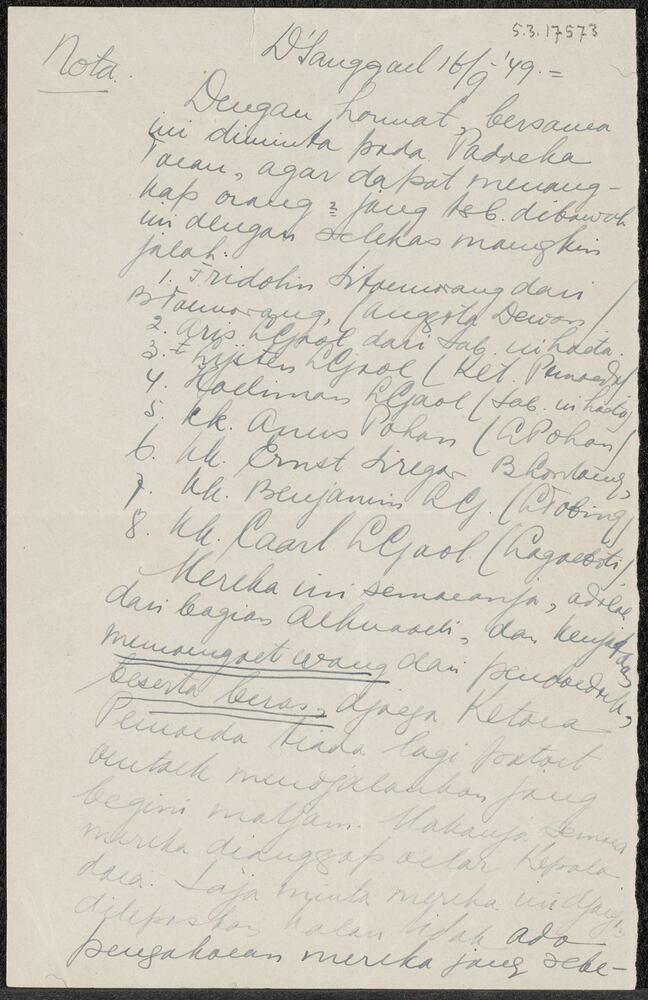 5.3.17573
Nota.
D'Sanggoel 16/9-'49.=
Dengan hormat, bersama
ini diminta pada Padoeka
Toean, agar dapat menang-
kap orang2 jang tsb. dibawah
ini dengan selekas mungkin
jalah:
1. Fridolin Sitoemorang dari
(anggota Dewan)
2. Aris LGaol dari Sab. ni hoeta.
3. LGaol (Ket. Pemoeda)
4. Hoelliman LGaol (Sab. ni hoeta)
5. kk. Anus Pohan (LPohan)
6. kk. Ernst Siregar
7. kk. Benjamin LG. (LTobing)
8. kk. Caarl LGaol (Lagoeboti)
Mereka ini semoeanja, adalah
dari bagian dan
memoengoet wang dari pendoedoek,
beserta beras, djoega Ketoea
Pemoeda tiada lagi patoet
oentoek mendjalankan jang
begini matjam. Makanja semua
mereka dianggap oelar kepala
doea. Saja minta mereka ini djangan
dilepaskan kalau tidak ada
pengakoean mereka jang sebe-